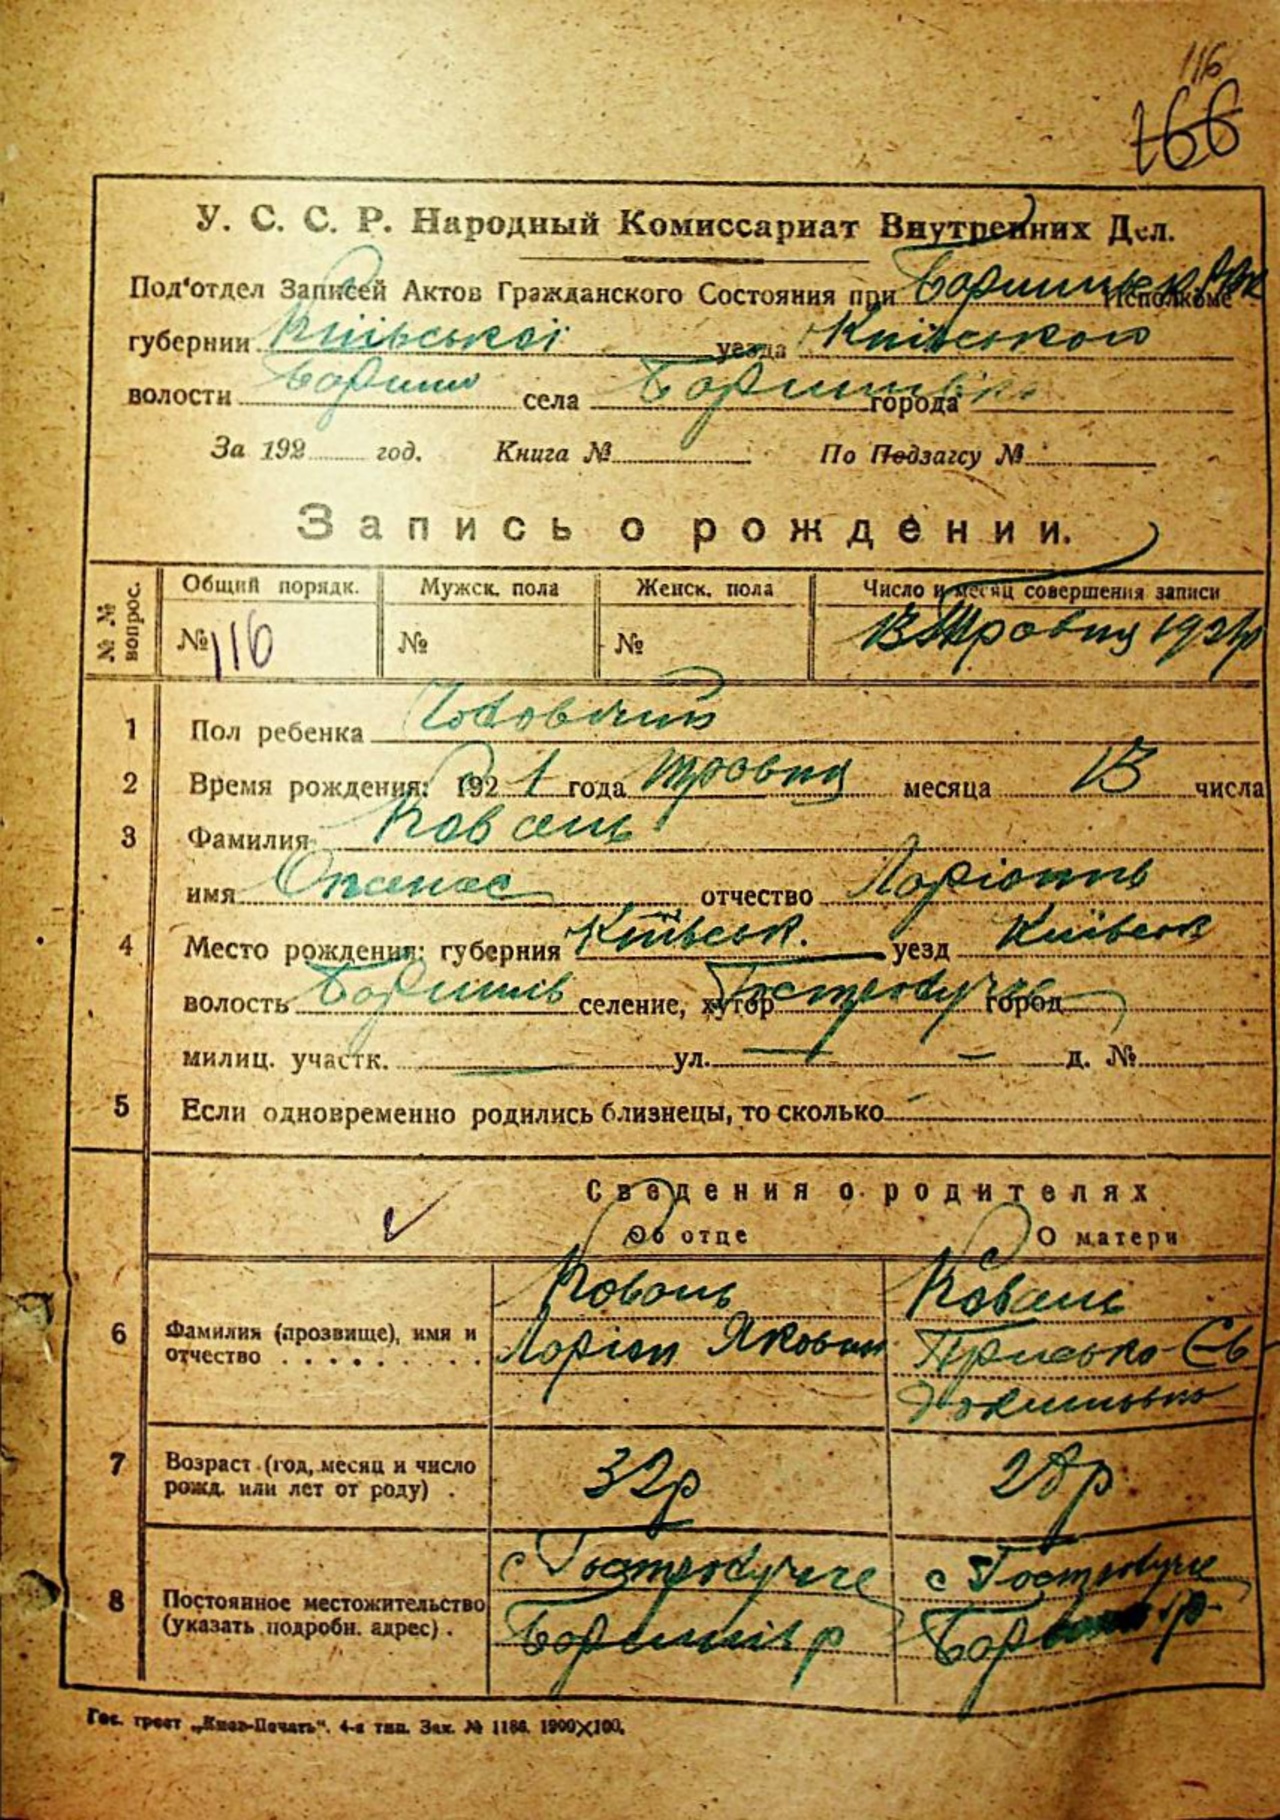 116
166
У. С. С. Р. Народный Комиссариат Внутренних Дел.
Под'отдел Записей Актов Гражданского Состояния при Исполкоме
губернии Київської уезда Київського
волости Бориш села города
За 192 год. Книга № По Подзагсу №
Запись о рождении.
№ № вопрос. Общий порядк. Мужск. пола Женск. пола Число и месяц совершения записи
№ 116 № № 13 Травня 1921р
1 Пол ребенка Чоловічий
2 Время рождения: 1921 года травня месяца 13 числа
3 Фамилия Коваль
имя Опанас отчество Ларіонів
4 Место рождения: губерния Київськ. уезд Київськ
волость селение, хутор Гостролуччє город
милиц. участк. ул. — — д. №
5 Если одновременно родились близнецы, то сколько
Сведения о родителях
Об отце О матери
6 Фамилия (прозвище), имя и отчество Коваль Ларіон Якович Коваль Приська
7 Возраст (год, месяц и число рожд. или лет от роду) 32р 28р
8 Постоянное местожительство (указать подробн. адрес) с Гостролуччє р с Гостролуччє р
Гос. трест „Киев-Печать". 4-я тип. Зак. № 1186. 1900×100.